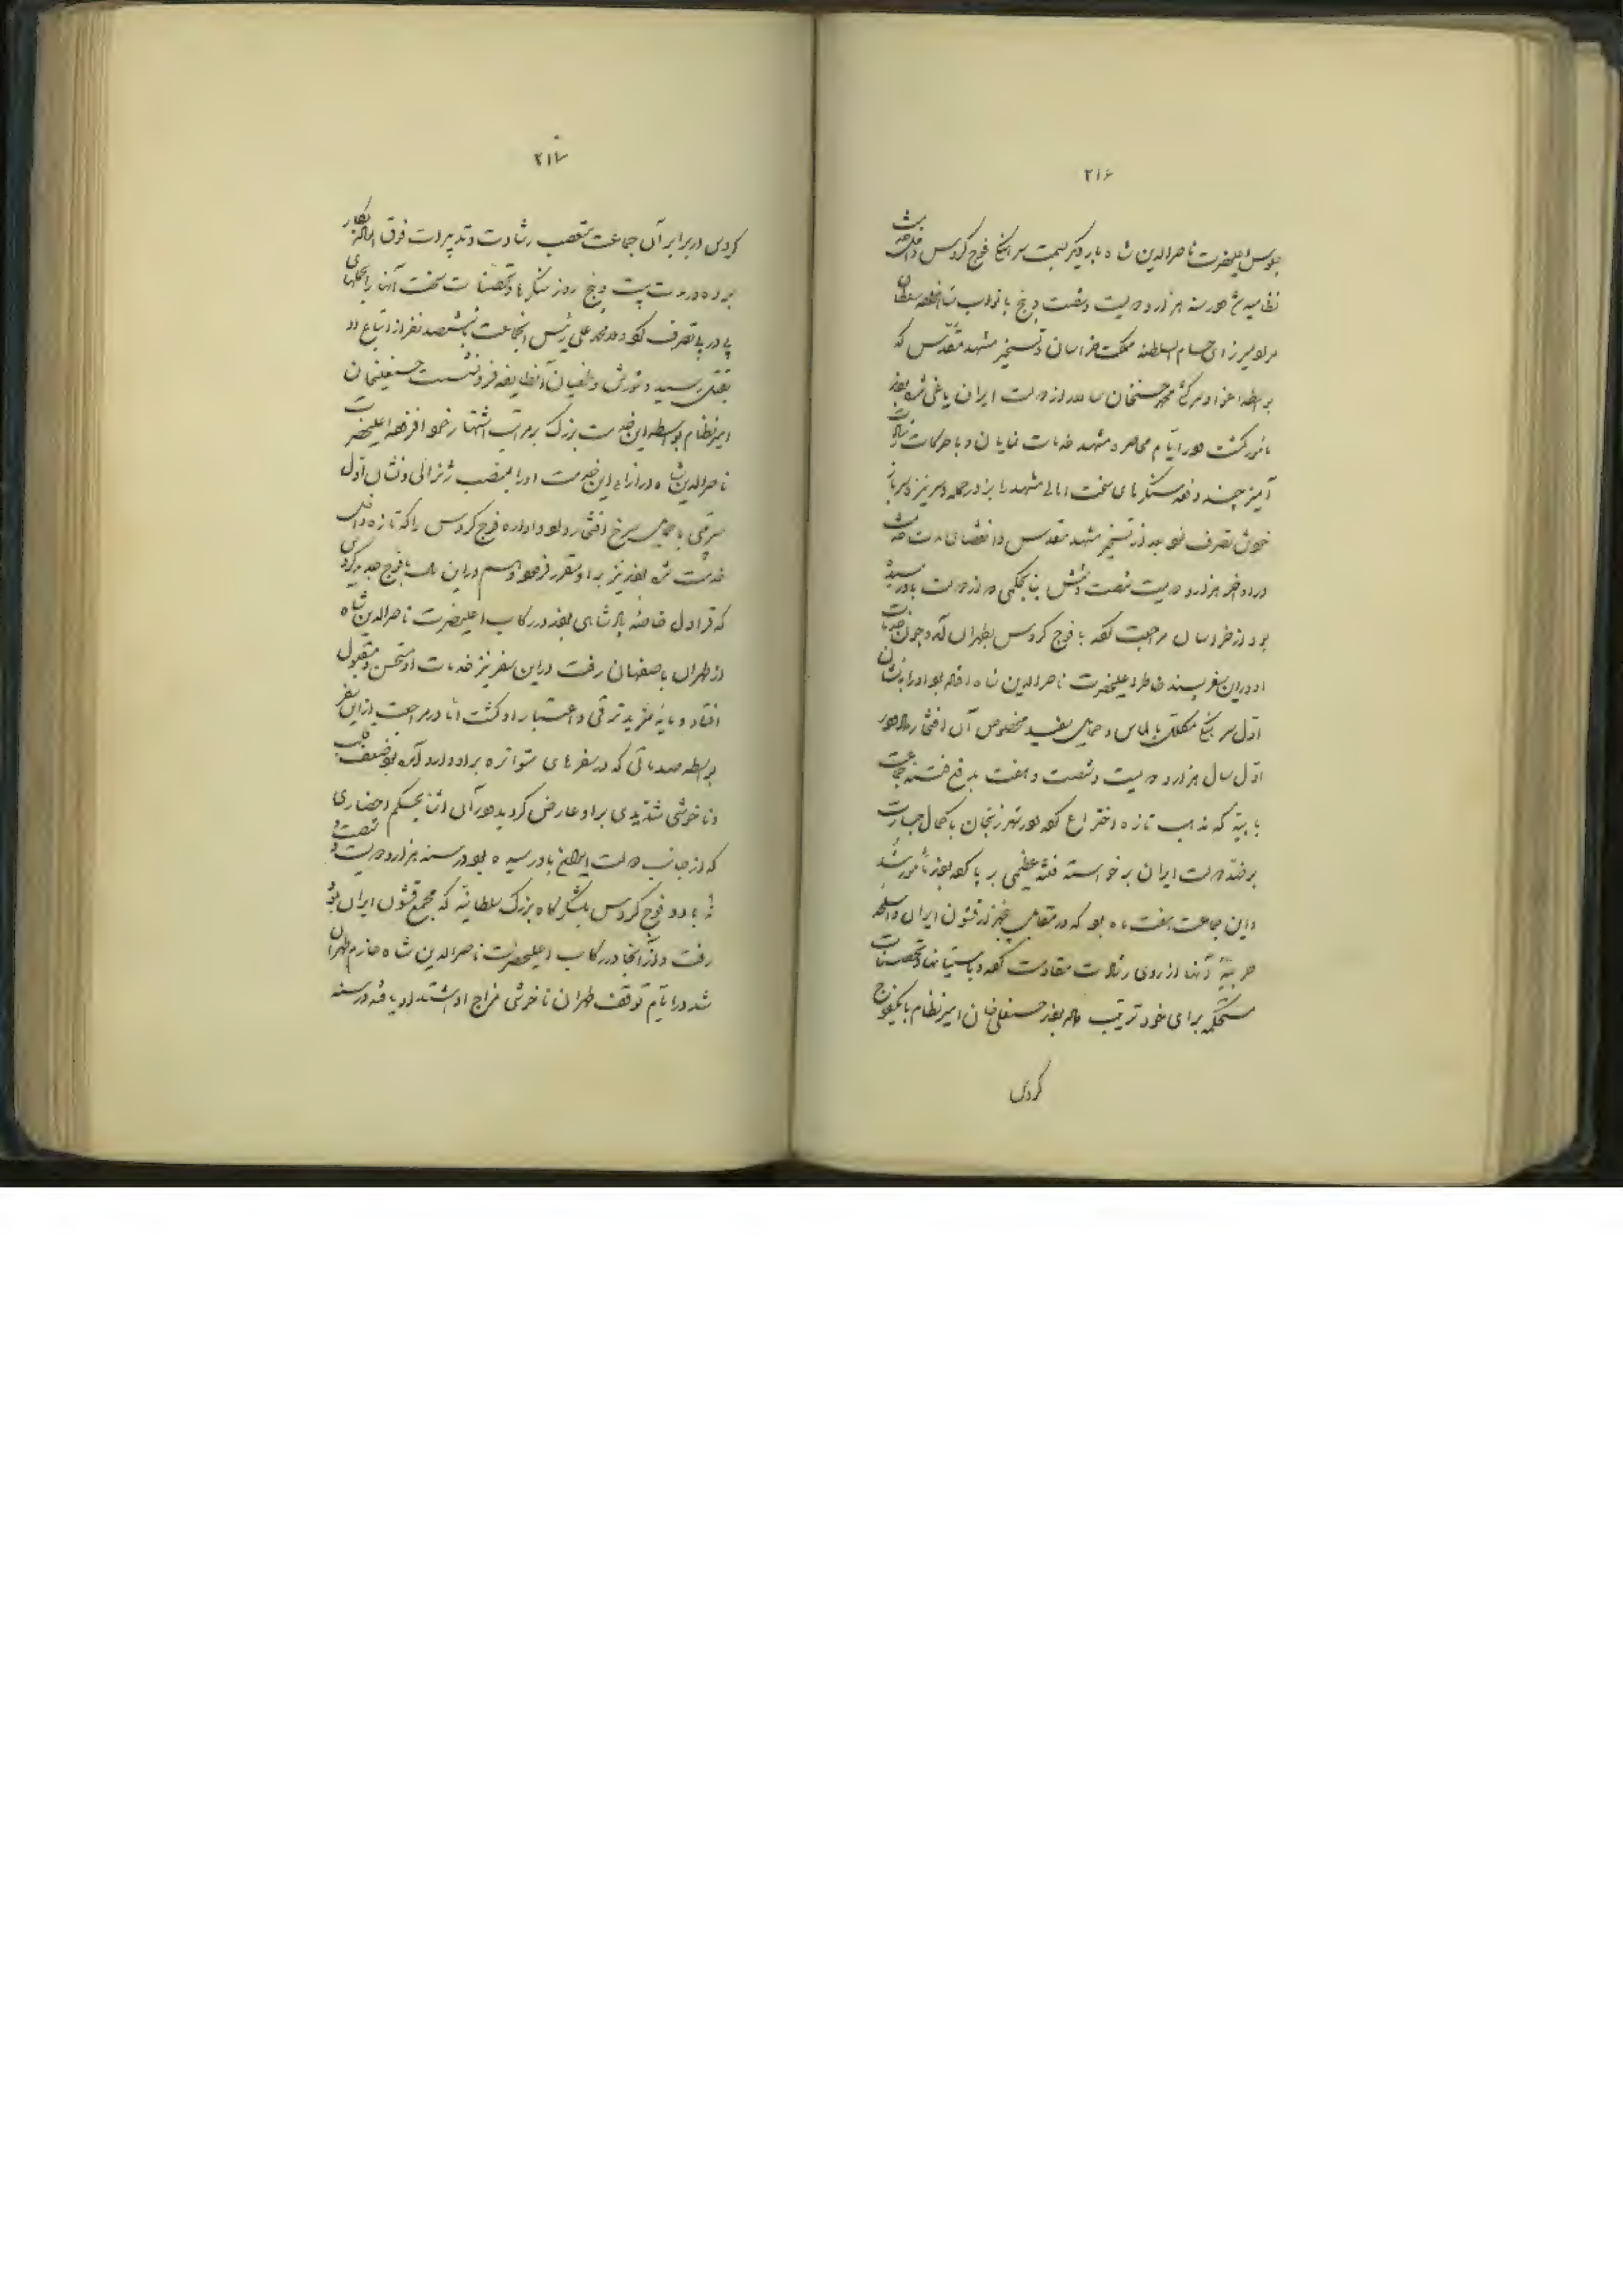 ۲۱۶
جلوس اعلیحضرت ناصرالدین شاه بار دیگر بسمت سرهنگی فوج کروس داخل خدمت
نظامیه شد در سنه هزار و دویست و شصت و پنج با نواب سلطان
مراد میرزای حسام السلطنه مملکت خراسان و تسخیر مشهد مقدس که
بواسطه اغوا و سرکشی محمد حسنخان سالار از دولت ایران یاغی شده بود
مأمور گشت در ایام محاصره مشهد خدمات نمایان و با حرکات رشادت
آمیز چند دفعه سنگرهای سخت اهالی مشهد را بزور حمله و سرنیزه سرباز
خویش تصرف نمود بعد از تسخیر مشهد مقدس و انقضای مدت خدمت
در اواخر هزار و دویست شصت و شش بنا بحکمی که از دولت باو رسیده
بود از خراسان مراجعت کرده با فوج کروس بطهران آمد و چون خدمات
او در این سفر پسند خاطر اعلیحضرت ناصرالدین شاه افتاده بود او را بنشان
اول سرهنگی مکلل بالماس و حمایل سفید مخصوص آن افتخار داد در
اول سال هزار و دویست و شصت و هفت بدفع فتنه جماعت
بابیه که مذهب تازه اختراع کرده در شهر زنجان با کمال جسارت
بر ضد دولت ایران برخواسته فتنه عظیمی بر پا کرده بودند مأمور شد
و این جماعت هفت ماه بود که در مقابل چند هزار قشون ایران و اسلحه
حربیه آنها از روی رشادت مقاومت کرده و استحکامات
مستحکمه برای خود ترتیب داده بودند حسنعلی خان امیر نظام با یکفوج
کروس
۲۱۷
کروس در برابر آن جماعت متعصب رشادت و تدبیرات فوق العاده بکار
برده در مدت بیست و پنج روز سنگرها و تحصنات سخت آنها را بحملهای
پی در پی تصرف کرد و ملا محمد علی رئیس انجماعت با ششصد نفر از اتباع او
بقتل رسید و شورش و طغیان آنطایفه فرو نشست حسنعلیخان
امیر نظام بواسطه این خدمت بزرگ بر مراتب اشتهار خود افزوده اعلیحضرت
ناصرالدین شاه در ازای این خدمت او را بمنصب ژنرالی و نشان اول
سرتیپی با حمایل سرخ افتخار داد و اداره فوج کروس را که تازه داخل
خدمت شده بود نیز باو مقرر فرمود و هم در این سال با فوج جدید کروس
که قراول خاصه پادشاهی بود در رکاب اعلیحضرت ناصرالدین شاه
از طهران باصفهان رفت در این سفر نیز خدمات او مستحسن و مقبول
افتاد و مایه مزید ترقی و اعتبار او گشت اما در مراجعت از این سفر
بواسطه صدماتی که در سفرهای متواتره بر او وارد آمده بود ضعف قلب
و ناخوشی شدیدی بر او عارض گردید در آن اثنا بحکم احضاری
که از جانب دولت ایران باو رسیده بود در سنه هزار و دویست و شصت و
نه با دو فوج کروس بلشکرگاه بزرگ سلطانیه که مجمع قشون ایران بود
رفت و از آنجا در رکاب اعلیحضرت ناصرالدین شاه عازم طهران
شد در ایام توقف طهران ناخوشی مزاج او اشتداد یافته در سنه